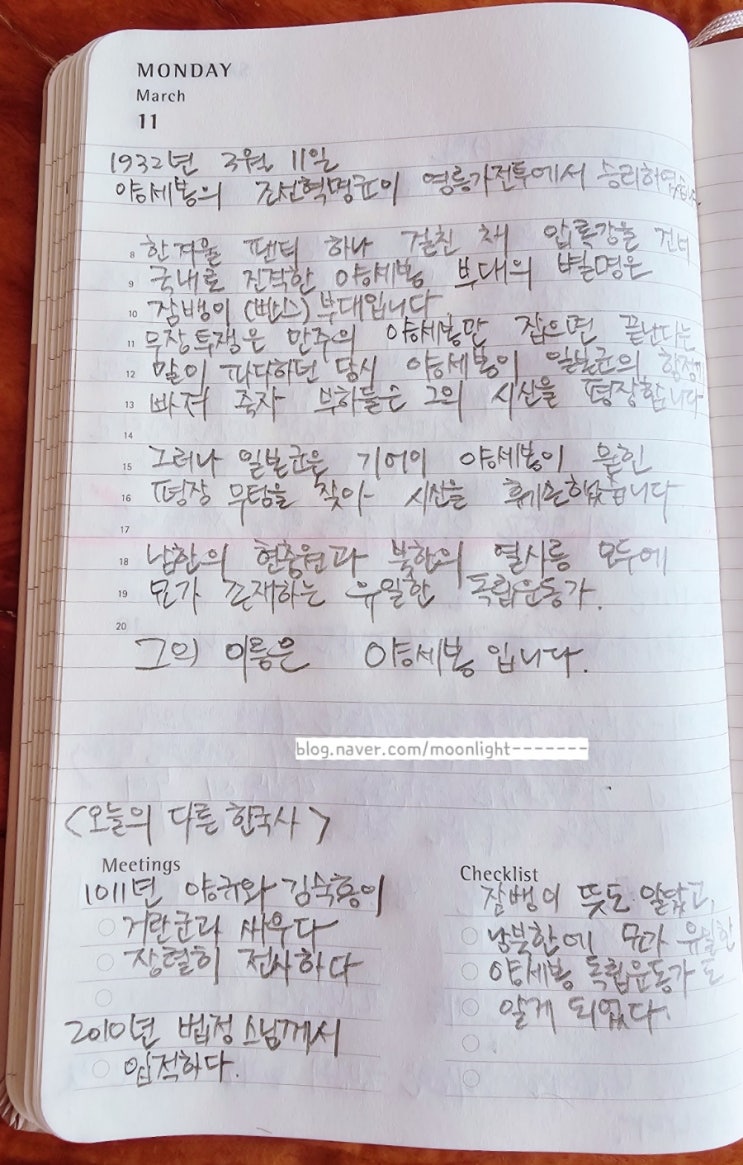 MONDAY
March
11
1932년 3월 11일
양세봉의 조선혁명군이 영릉가전투에서 승리하였습니다
8 한겨울 팬티 하나 걸친 채 압록강을 건너
9 국내로 진격한 양세봉 부대의 별명은
10 잠뱅이 (빤스) 부대입니다
11 무장투쟁은 만주의 양세봉만 잡으면 끝난다는
12 말이 파다하던 당시 양세봉이 일본군의 함정에
13 빠져 죽자 부하들은 그의 시신을 평장합니다
14
15 그러나 일본군은 기어이 양세봉이 묻힌
16 평장 무덤을 찾아 시신을 훼손하였습니다
17
18 남한의 현충원과 북한의 열사릉 모두에
19 묘가 존재하는 유일한 독립운동가.
20
그의 이름은 양세봉 입니다.
blog.naver.com/moonlight-------
<오늘의 다른 한국사>
Meetings
1011년 양규와 김숙흥이
거란군과 싸우다
장렬히 전사하다
2010년 법정 스님께서
입적하다.
Checklist
잠뱅이 뜻도 알았고,
남북한에 묘가 유일한
양세봉 독립운동가 도
알게 되었다.